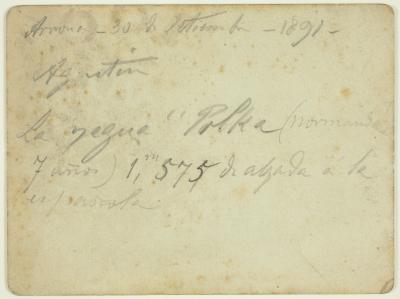 30 de Setiembre - 1891 -
Agustin
La yegua "Polka (normanda
7 años) 1,m 575 de alzada á la
española